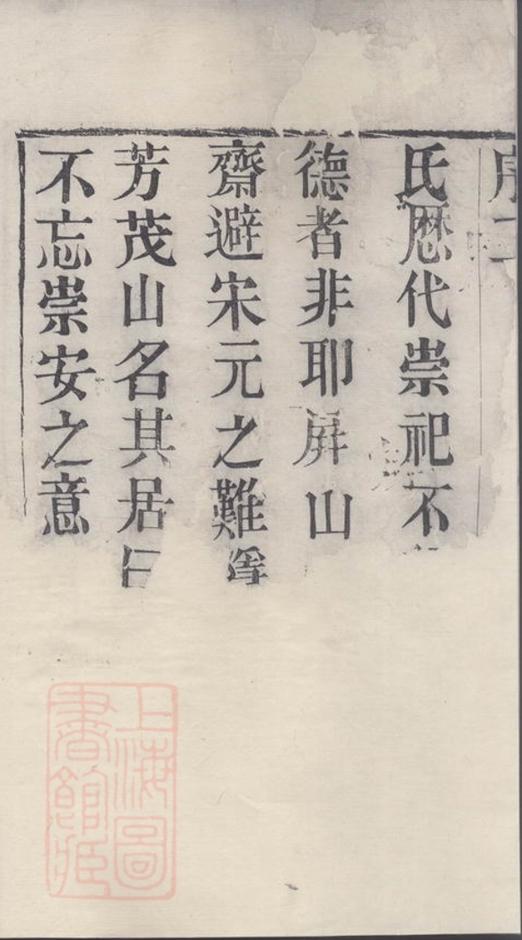 序
氏歷代崇祀不
德者非耶屛山
齋避宋元之難
芳茂山名其居曰
不忘崇安之意
上海圖
書館藏